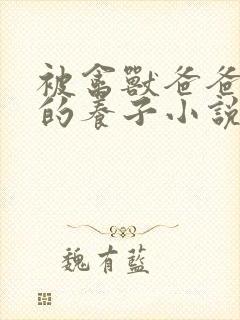 被禽獸爸爸
的養子小說
魏有藍